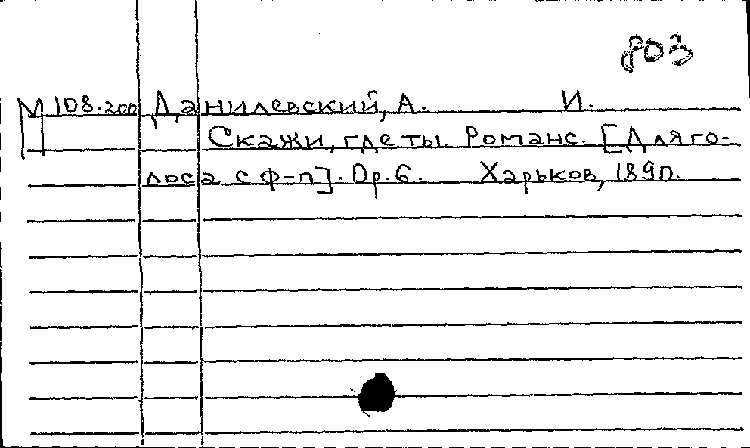 803
М 108.200 Данилевский, А. И.
Скажи, где ты. Романс. [Для го-
лоса с ф-п]. Op. 6. Харьков, 1890.